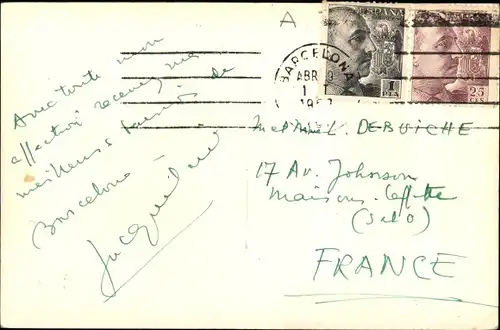 A
ESPAÑA
BARCELONA
ABR
1 PTA
25 CTS
Avec toute mon
affection recevez mes
meilleurs souvenirs de
Barcelone
Jacqueline
DEBUICHE
17 Av. Johnson
Maisons Laffitte
(S et O)
FRANCE